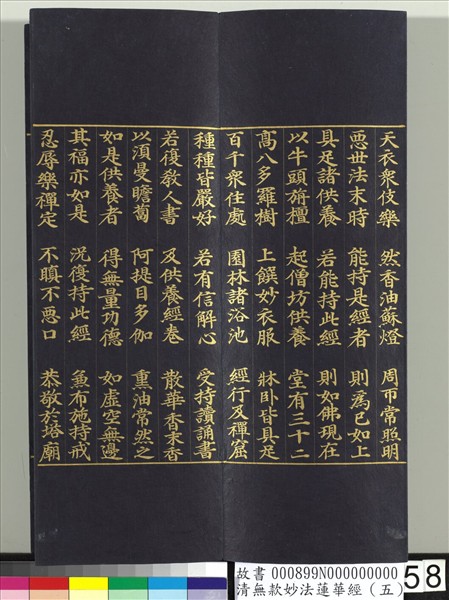 天衣眾伎樂　然香油蘇燈　周帀常照明
惡世法末時　能持是經者　則為已如上
具足諸供養　若能持此經　則如佛現在
以牛頭旃檀　起僧坊供養　堂有三十二
高八多羅樹　上饌妙衣服　牀臥皆具足
百千眾住處　園林諸浴池　經行及禪窟
種種皆嚴好　若有信解心　受持讀誦書
若復教人書　及供養經卷　散華香末香
以須曼瞻蔔　阿提目多伽　熏油常然之
如是供養者　得無量功德　如虛空無邊
其福亦如是　況復持此經　兼布施持戒
忍辱樂禪定　不瞋不惡口　恭敬於塔廟
故書 000899N000000000
清無款妙法蓮華經（五）
58